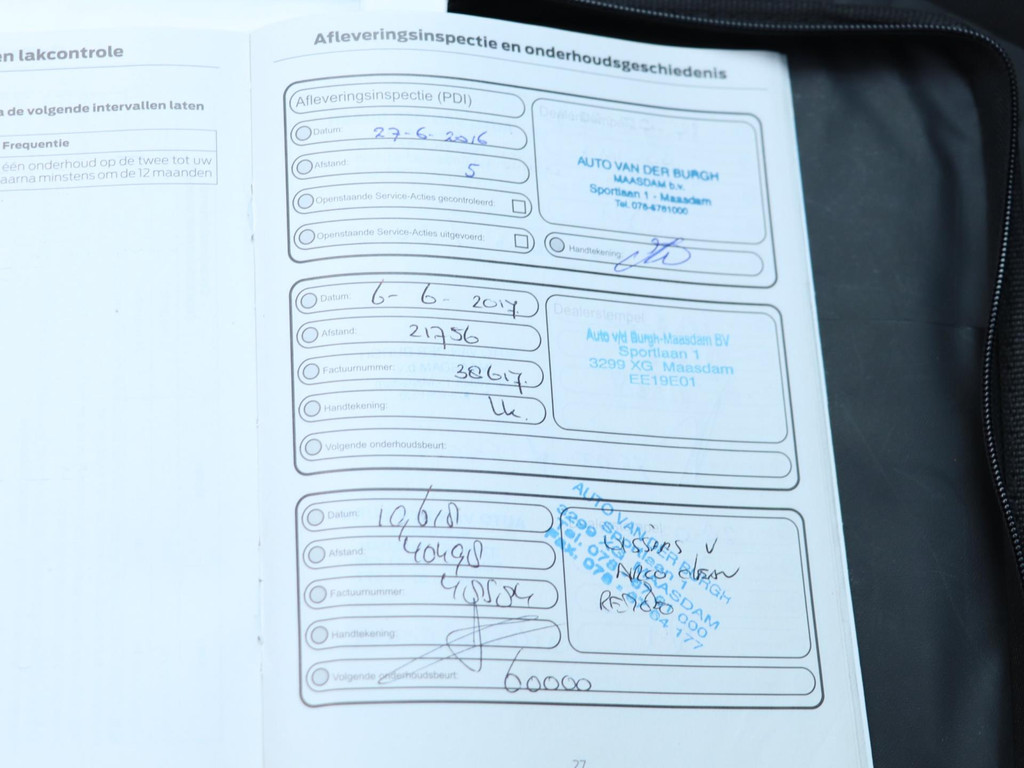 en lakcontrole
a de volgende intervallen laten
Frequentie
één onderhoud op de twee tot uw
aarna minstens om de 12 maanden
Afleveringsinspectie en onderhoudsgeschiedenis
Afleveringsinspectie (PDI)
Datum: 27-6-2016
Afstand: 5
Openstaande Service-Acties gecontroleerd:
Openstaande Service-Acties uitgevoerd:
AUTO VAN DER BURGH
MAASDAM b.v.
Sportlaan 1 - Maasdam
Tel. 078-6761000
Handtekening:
Datum: 6-6-2017
Afstand: 21756
Factuurnummer: 38617
Handtekening:
Volgende onderhoudsbeurt:
Dealerstempel
Auto v/d Burgh-Maasdam BV
Sportlaan 1
3299 XG Maasdam
EE19E01
Datum: 19,618
Afstand: 40498
Factuurnummer:
Handtekening:
Volgende onderhoudsbeurt: 60000
AUTO VAN DER BURGH
MAASDAM
27